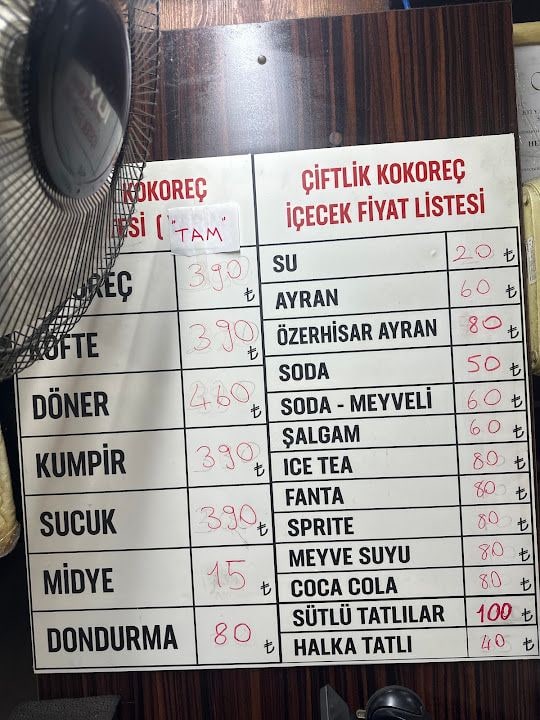 KOKOREÇ
"TAM"
390 ₺
KÖFTE 390 ₺
DÖNER 460 ₺
KUMPİR 390 ₺
SUCUK 390 ₺
MİDYE 15 ₺
DONDURMA 80 ₺
ÇİFTLİK KOKOREÇ
İÇECEK FİYAT LİSTESİ
SU 20 ₺
AYRAN 60 ₺
ÖZERHİSAR AYRAN 80 ₺
SODA 50 ₺
SODA - MEYVELİ 60 ₺
ŞALGAM 60 ₺
ICE TEA 80 ₺
FANTA 80 ₺
SPRITE 80 ₺
MEYVE SUYU 80 ₺
COCA COLA 80 ₺
SÜTLÜ TATLILAR 100 ₺
HALKA TATLI 40 ₺